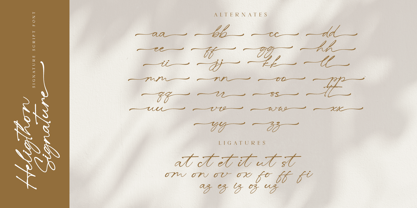 SIGNATURE SCRIPT FONT
Heligthon
Signature
ALTERNATES
aa bb cc dd
ee ff gg hh
ii jj kk ll
mm nn oo pp
qq rr ss tt
uu vv ww xx
yy zz
LIGATURES
at ct et it ut st
om on ov ox fo ff fi
az ez iz oz uz